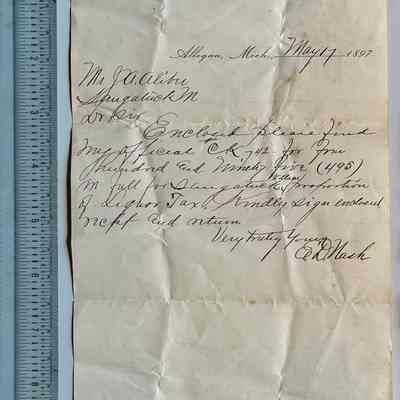 Allegan, Mich., May 17 1897
Mr J. A. Aliber
Saugatuck M
Dr Sir
Enclosed please find
my official CK 702 for four
hundred and Ninety five (495)
in full for Saugatuck Village proportion
of Liquor Tax. Kindly sign enclosed
rect and return
Very truly Yours
E D Nash